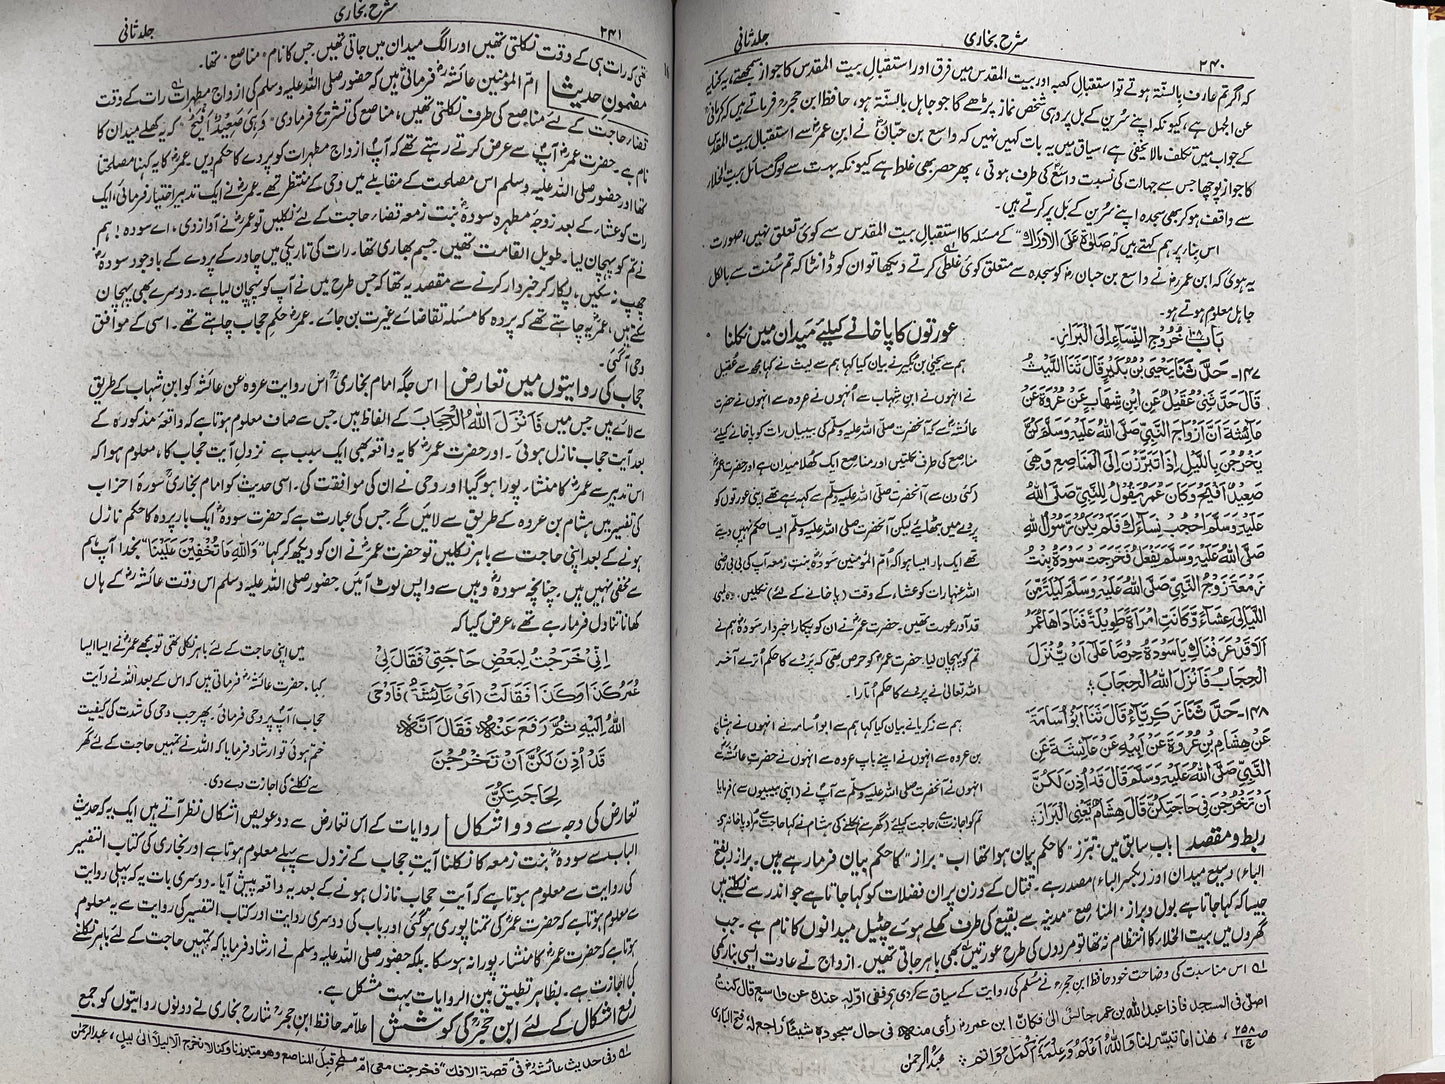 ۲۴۰ شرح بخاری جلد ثانی
کہ اگر تم عارف بالسنۃ ہوتے تو استقبال کعبہ اور بیت المقدس میں فرق اور استقبال بیت المقدس کا جواز سمجھتے، یہ
عن الجہل ہے، کیونکہ اپنے سُرین کے بل پر وہی شخص نماز پڑھے گا جو جاہل بالسنّۃ ہو، حافظ ابن حجر فرماتے ہیں کہ کرمانی
کے جواب میں تکلف مالا یخفی ہے، سیاق میں یہ بات کہیں نہیں کہ واسع بن حبّان نے ابن عمر سے استقبال بیت المقدس
کا جواز پوچھا جس سے جہالت کی نسبت واسع کی طرف ہوتی، پھر حصر بھی غلط ہے کیونکہ بہت سے لوگ مسائل بیت الخلاء
سے واقف ہو کر بھی سجدہ اپنے سُرین کے بل پر کرتے ہیں۔
اس بنا پر ہم کہتے ہیں کہ صَلوٰۃ عَلَی الْاَوْرَاک کے مسئلہ کا استقبال بیت المقدس سے کوئی تعلق نہیں، صورت
یہ ہوئی کہ ابن عمر نے واسع بن حبان کو سجدہ سے متعلق کوئی غلطی کرتے دیکھا تو ان کو ڈانٹا کہ تم سُنت سے بالکل
جاہل معلوم ہوتے ہو۔
بَابُ خُرُوْجِ النِّسَاءِ اِلَی الْبَرَازِ۔
عورتوں کا پاخانے کیلئے میدان میں نکلنا
۱۴۷- حَدَّثَنَا یَحْیَی بْنُ بُکَیْرٍ قَالَ ثَنَا اللَّیْثُ
قَالَ حَدَّثَنِیْ عُقَیْلٌ عَنِ ابْنِ شِهَابٍ عَنْ عُرْوَةَ عَنْ
عَائِشَةَ اَنَّ اَزْوَاجَ النَّبِیِّ صَلَّی اللّٰهُ عَلَیْهِ وَسَلَّمَ کُنَّ
یَخْرُجْنَ بِاللَّیْلِ اِذَا تَبَرَّزْنَ اِلَی الْمَنَاصِعِ وَهِیَ
صَعِیْدٌ اَفْیَحُ وَکَانَ عُمَرُ یَقُوْلُ لِلنَّبِیِّ صَلَّی اللّٰهُ
عَلَیْهِ وَسَلَّمَ اُحْجُبْ نِسَاءَكَ فَلَمْ یَکُنْ رَسُوْلُ اللّٰهِ
صَلَّی اللّٰهُ عَلَیْهِ وَسَلَّمَ یَفْعَلُ فَخَرَجَتْ سَوْدَةُ بِنْتُ
زَمْعَةَ زَوْجُ النَّبِیِّ صَلَّی اللّٰهُ عَلَیْهِ وَسَلَّمَ لَیْلَةً مِّنَ
اللَّیَالِیْ عِشَاءً وَّکَانَتِ امْرَاَةً طَوِیْلَةً فَنَادَاهَا عُمَرُ
اَلَا قَدْ عَرَفْنَاكِ یَا سَوْدَةُ حِرْصًا عَلٰی اَنْ یُّنْزَلَ
الْحِجَابُ فَاَنْزَلَ اللّٰهُ الْحِجَابَ
۱۴۸- حَدَّثَنَا زَکَرِیَّاءُ قَالَ ثَنَا اَبُوْ اُسَامَةَ
عَنْ هِشَامِ بْنِ عُرْوَةَ عَنْ اَبِیْهِ عَنْ عَائِشَةَ عَنِ
النَّبِیِّ صَلَّی اللّٰهُ عَلَیْهِ وَسَلَّمَ قَالَ قَدْ اُذِنَ لَکُنَّ
اَنْ تَخْرُجْنَ فِیْ حَاجَتِکُنَّ قَالَ هِشَامٌ یَّعْنِی الْبَرَازَ
ہم سے یحییٰ بن بکیر نے بیان کیا کہا ہم سے لیث نے کہا مجھ سے عُقیل
نے انہوں نے ابن شہاب سے اُنہوں نے عروہ سے انہوں نے حضرت
عائشہ سے کہ آنحضرت صلی اللہ علیہ وسلم کی بیبیاں رات کو پاخانے کیلئے
مناصع کی طرف نکلتیں اور مناصع ایک کُھلا میدان ہے اور حضرت عمر
(کئی دن سے) آنحضرت صلی اللہ علیہ وسلم سے کہہ رہے تھے اپنی عورتوں کو
پردے میں بٹھائیے لیکن آنحضرت صلی اللہ علیہ وسلم ایسا حکم نہیں دیتے
تھے ایک بار ایسا ہوا کہ اُمّ المؤمنین سودہ بنتِ زمعہ آپ کی بی بی رضی
اللہ عنہا رات کو عشاء کے وقت (پاخانے کے لئے) نکلیں۔ وہ لمبی
قد آور عورت تھیں۔ حضرت عمر نے ان کو پکارا خبردار سودہ ہم نے
تم کو پہچان لیا۔ حضرت عمر کو حرص تھی کہ پردے کا حکم اُترے آخر
اللہ تعالیٰ نے پردے کا حکم اُتارا۔
ہم سے زکریا نے بیان کیا کہا ہم سے ابو اسامہ نے انہوں نے ہشام
بن عروہ سے انہوں نے اپنے باپ عروہ سے انہوں نے حضرت عائشہ سے
انہوں نے آنحضرت صلی اللہ علیہ وسلم سے آپ نے (اپنی بیبیوں سے) فرمایا
تم کو اجازت ہے، حاجت کیلئے (گھر سے) نکلنے کی ہشام نے کہا حاجت سے مراد پاخانہ ہے
ربط و مقصد باب سابق میں "تبرّز" کا حکم بیان ہوا تھا اب "براز" کا حکم بیان فرما رہے ہیں۔ براز (بفتح
الباء) وسیع میدان اور (بکسر الباء) مصدر ہے۔ قتال کے وزن پر ان فضلات کو کہا جاتا ہے جو اندر سے نکلتے ہیں
جیسا کہ کہا جاتا ہے بول و براز۔ "المناصع" مدینہ سے بقیع کی طرف کھلے ہوئے چٹیل میدانوں کا نام ہے۔ جب
گھروں میں بیت الخلاء کا انتظام نہ تھا تو مردوں کی طرح عورتیں بھی باہر جاتی تھیں۔ ازواج نے عادت ایسی بنا رکھی
اس مناسبت کی وضاحت خود حافظ ابن حجر نے مسلم کی روایت کے سیاق سے کر دی ہے ففی اولہ عندہ عن واسع قال کنت
اصلی فی المسجد فاذا عبداللہ بن عمر جالس الیٰ فکانّ ابن عمر رأی منہ فی حال سجودہ شیئاً راجع لہ فتح الباری
ص ۲۵۸ ج۱، ھذا ما تیسر لنا واللہ اعلم وعلمہ اکمل واتم عبدالرحمٰن
۲۴۱ شرح بخاری جلد ثانی
تھی کہ رات ہی کے وقت نکلتی تھیں اور الگ میدان میں جاتی تھیں۔ جس کا نام "مناصع" تھا۔
مضمونِ حدیث امّ المؤمنین عائشہ فرماتی ہیں کہ حضور صلی اللہ علیہ وسلم کی ازواج مطہرات رات کے وقت
قضاء حاجت کے لئے مناصع کی طرف نکلتی تھیں، مناصع کی تشریح فرما دی "وَہِیَ صَعِیْدٌ اَفْیَحُ" کہ یہ کھلے میدان کا
نام ہے۔ حضرت عمر آپ سے عرض کرتے رہتے تھے کہ آپ ازواج مطہرات کو پردے کا حکم دیں۔ عمر کا یہ کہنا مصلحتاً
تھا اور حضور صلی اللہ علیہ وسلم اس مصلحت کے مقابلے میں وحی کے منتظر تھے۔ عمر نے ایک تدبیر اختیار فرمائی، ایک
رات کو عشاء کے بعد زوجۂ مطہرہ سودہ بنت زمعہ قضاء حاجت کے لئے نکلیں تو عمر نے آواز دی، اے سودہ! ہم
نے تم کو پہچان لیا۔ طویل القامت تھیں۔ جسم بھاری تھا۔ رات کی تاریکی میں چادر کے پردے کے باوجود سودہ
چھپ نہ سکیں، پکار کر خبردار کرنے سے مقصد یہ تھا کہ جس طرح میں نے آپ کو پہچان لیا ہے۔ دوسرے بھی پہچان
سکتے ہیں، عمر یہ چاہتے تھے کہ پردہ کا مسئلہ تقاضائے غیرت بن جائے۔ عمر حکم حجاب چاہتے تھے۔ اسی کے موافق
وحی آ گئی۔
حجاب کی روایتوں میں تعارض اس جگہ امام بخاری اس روایت عروہ عن عائشہ کو ابن شہاب کے طریق
سے لائے ہیں جس میں فَاَنْزَلَ اللّٰہُ الْحِجَابَ کے الفاظ ہیں۔ جس سے صاف معلوم ہوتا ہے کہ واقعہ مذکورہ کے
بعد آیت حجاب نازل ہوئی۔ اور حضرت عمر کا یہ واقعہ بھی ایک سبب ہے نزول آیت حجاب کا، معلوم ہوا کہ
اس تدبیر سے عمر کا منشاء پورا ہو گیا اور وحی نے ان کی موافقت کی۔ اسی حدیث کو امام بخاری سورۂ احزاب
کی تفسیر میں ہشام بن عروہ کے طریق سے لائیں گے۔ جس کی عبارت ہے کہ حضرت سودہ ایک بار پردہ کا حکم نازل
ہونے کے بعد اپنی حاجت سے باہر نکلیں تو حضرت عمر نے ان کو دیکھ کر کہا "وَاللّٰہِ مَا تَخْفَیْنَ عَلَیْنَا" بخدا آپ ہم
سے مخفی نہیں ہیں۔ چنانچہ سودہ وہیں سے واپس لوٹ آئیں۔ حضور صلی اللہ علیہ وسلم اس وقت عائشہ کے ہاں
کھانا تناول فرما رہے تھے، عرض کیا کہ
اِنِّیْ خَرَجْتُ لِبَعْضِ حَاجَتِیْ فَقَالَ لِیْ
عُمَرُ کَذَا وَکَذَا فَقَالَتْ (اَیْ عَائِشَةُ) فَاَوْحَی
اللّٰهُ اِلَیْهِ ثُمَّ رَفَعَ عَنْهُ فَقَالَ اِنَّهُ
قَدْ اُذِنَ لَکُنَّ اَنْ تَخْرُجْنَ
لِحَاجَتِکُنَّ
میں اپنی حاجت کے لئے باہر نکلی تھی تو مجھے عمر نے ایسا ایسا
کہا۔ حضرت عائشہ فرماتی ہیں کہ اس کے بعد اللہ نے رایت
حجاب، آپ پر وحی فرمائی۔ پھر جب وحی کی شدت کی کیفیت
ختم ہوئی تو ارشاد فرمایا کہ اللہ نے تمہیں حاجت کے لئے گھر
سے نکلنے کی اجازت دے دی۔
تعارض کی وجہ سے دو اشکال روایات کے اس تعارض سے دو عویص اشکال نظر آتے ہیں ایک یہ کہ حدیث
الباب سے سودہ بنت زمعہ کا نکلنا آیت حجاب کے نزول سے پہلے معلوم ہوتا ہے اور بخاری کی کتاب التفسیر
کی روایت سے معلوم ہوتا ہے کہ آیت حجاب نازل ہونے کے بعد یہ واقعہ پیش آیا۔ دوسری بات یہ کہ پہلی روایت
سے معلوم ہوتا ہے کہ حضرت عمر کی تمنا پوری ہو گئی اور باب کی دوسری روایت اور کتاب التفسیر کی روایت سے یہ معلوم
ہوتا ہے کہ حضرت عمر کا منشاء پورا نہ ہو سکا۔ بلکہ حضور صلی اللہ علیہ وسلم نے ارشاد فرمایا کہ تمہیں حاجت کے لئے باہر نکلنے
کی اجازت ہے۔ بظاہر تطبیق بین الروایات بہت مشکل ہے۔
رفع اشکال کے لئے ابن حجر کی کوشش علامہ حافظ ابن حجر شارح بخاری نے دونوں روایتوں کو جمع
وفی حدیث عائشہ فی "قصۃ الافک" فخرجت معی امّ مسطح قِبَل المناصع وهو متبرزنا وکنا لا نخرج الا لیلاً الیٰ لیلٍ، عبدالرحمٰن